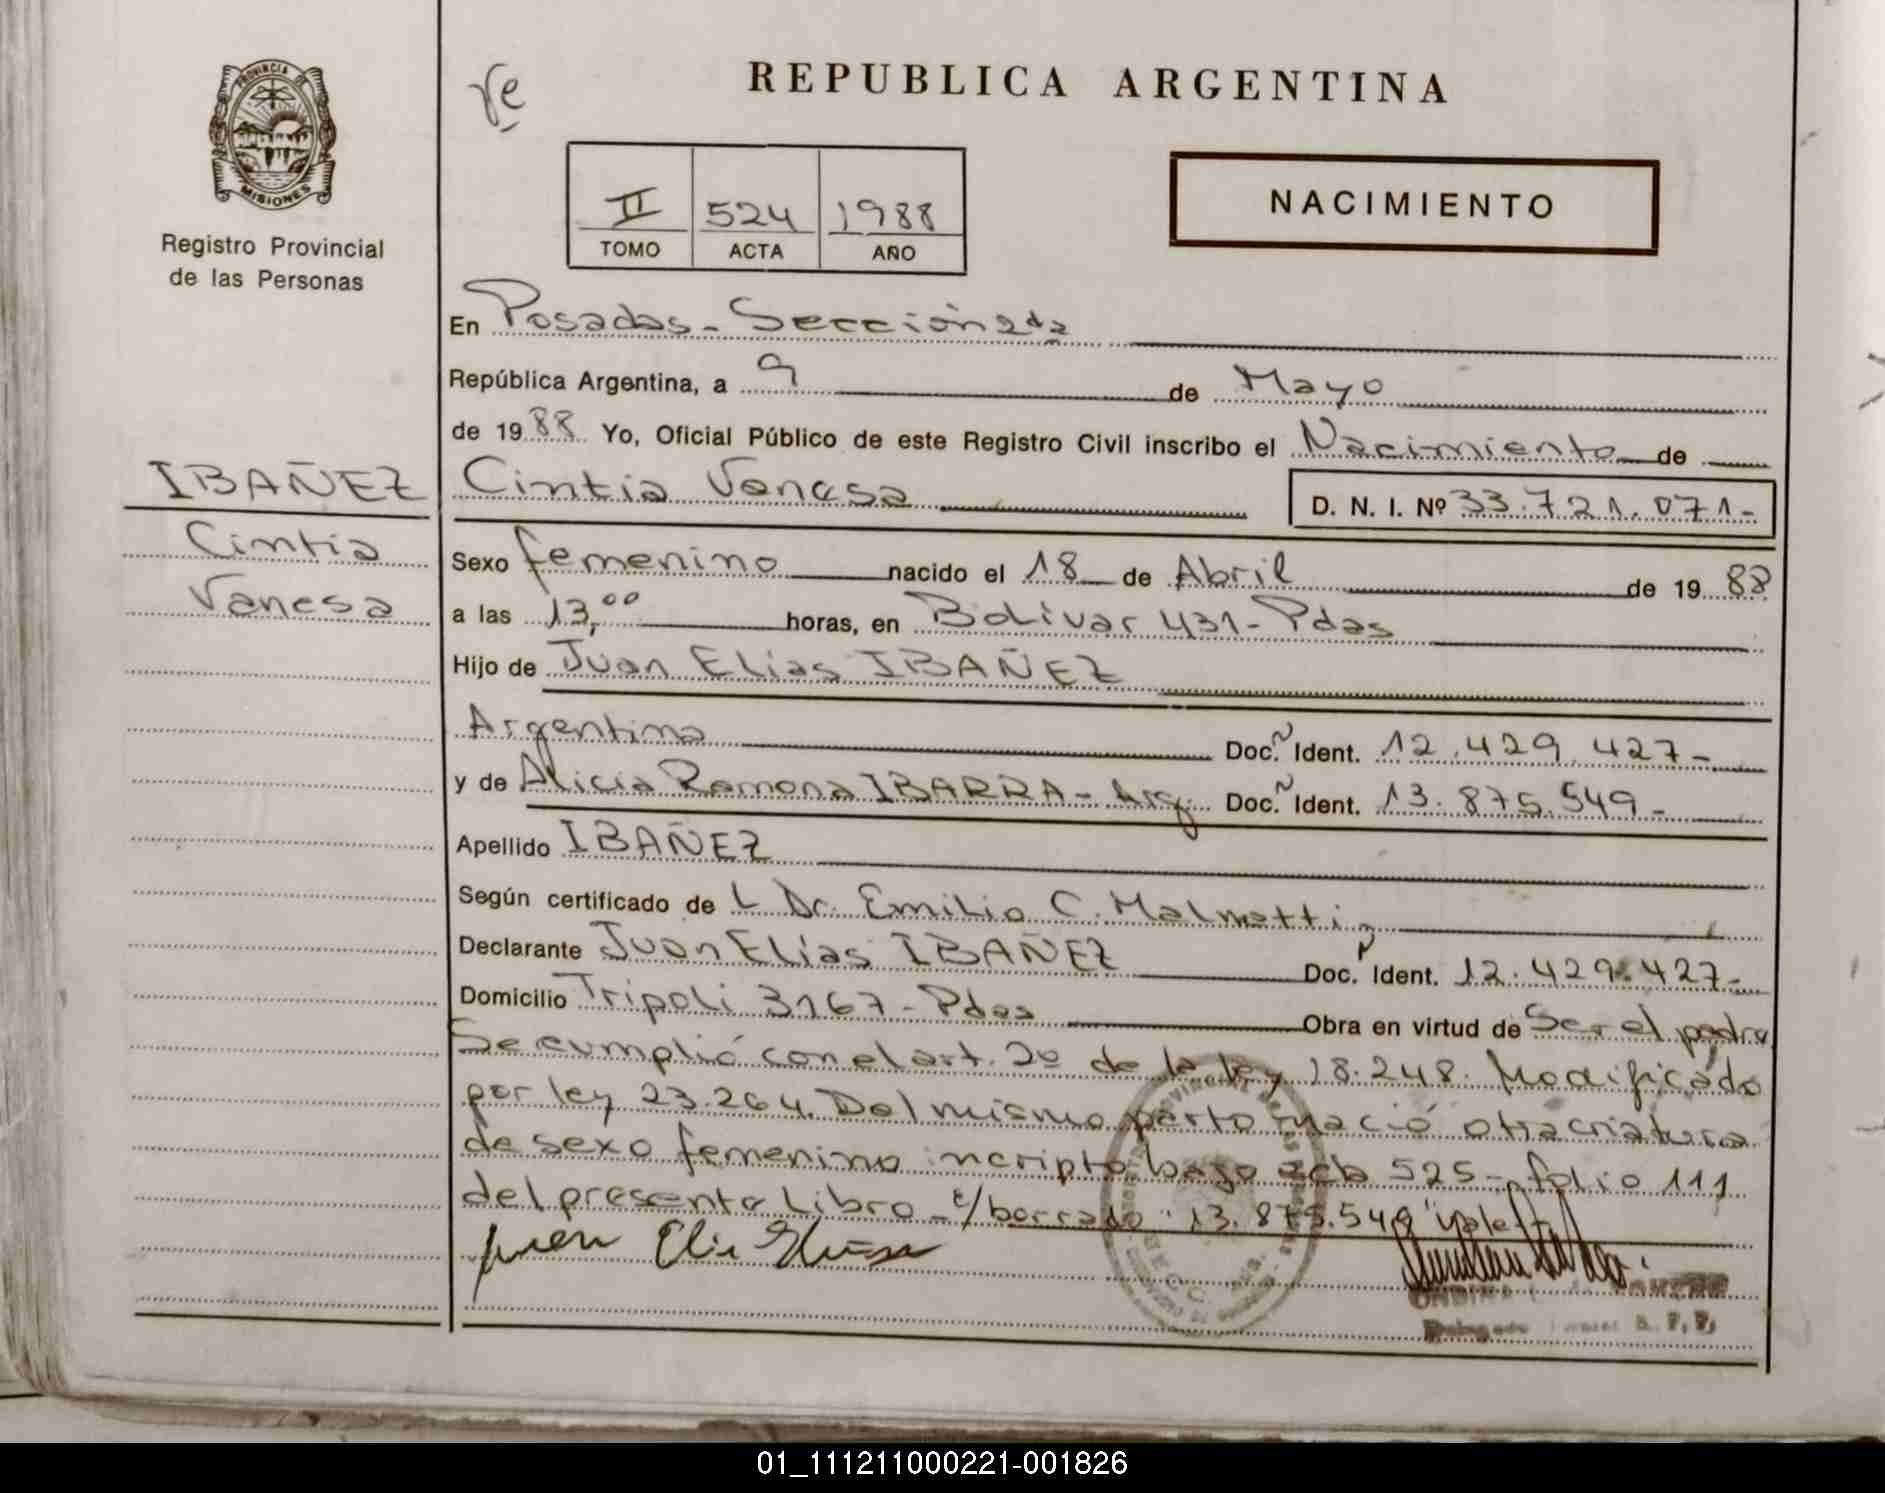 PROVINCIA DE
MISIONES
Registro Provincial
de las Personas
REPUBLICA ARGENTINA
II 524 1988
TOMO ACTA AÑO
NACIMIENTO
En Posadas - Sección 2da
República Argentina, a 9 de Mayo
de 1988 Yo, Oficial Público de este Registro Civil inscribo el Nacimiento de
IBAÑEZ
Cintia
Vanesa
Cintia Vanesa D. N. I. Nº 33.721.071-
Sexo femenino nacido el 18 de Abril de 1988
a las 13,00 horas, en Bolivar 431 - Pdas
Hijo de Juan Elías IBAÑEZ
Argentino Doc. Ident. 12.429.427-
y de Alicia Ramona IBARRA - Arg. Doc. Ident. 13.875.549-
Apellido IBAÑEZ
Según certificado de L Dr. Emilio C. Malmatti
Declarante Juan Elías IBAÑEZ Doc. Ident. 12.429.427-
Domicilio Tripoli 3167 - Pdas Obra en virtud de Ser el padre
Se cumplió con el art. 2º de la ley 18.248. Modificado
por ley 23.264. Del mismo parto nació otra criatura
de sexo femenino incripto bajo acta 525 - folio 111
del presente Libro - e/borrado "13.875.549" vale
Juan Elia
01_111211000221-001826